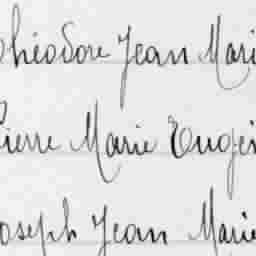 Théodore Jean Mari
Pierre Marie Eugèn
Joseph Jean Marie